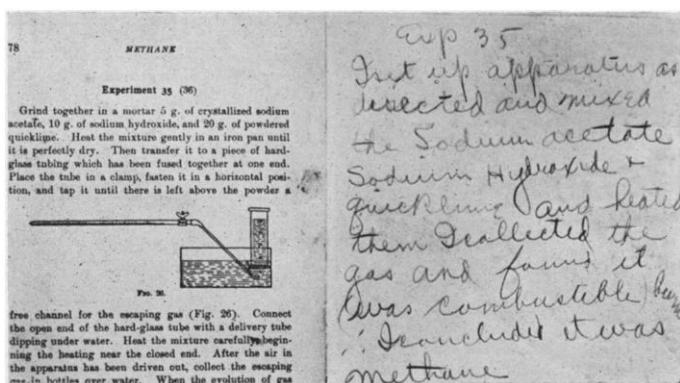 78 METHANE
Experiment 35 (36)
Grind together in a mortar 5 g. of crystallized sodium
acetate, 10 g. of sodium hydroxide, and 20 g. of powdered
quicklime. Heat the mixture gently in an iron pan until
it is perfectly dry. Then transfer it to a piece of hard-
glass tubing which has been fused together at one end.
Place the tube in a clamp, fasten it in a horizontal posi-
tion, and tap it until there is left above the powder a
FIG. 26.
free channel for the escaping gas (Fig. 26). Connect
the open end of the hard-glass tube with a delivery tube
dipping under water. Heat the mixture carefully, begin-
ning the heating near the closed end. After the air in
the apparatus has been driven out, collect the escaping
gas in bottles over water. When the evolution of gas
Exp 35
I set up apparatus as
directed and mixed
the Sodium acetate
Sodium Hydroxide +
quicklime and heated
them I collected the
gas and found it
(was combustible)
∴ I concluded it was
methane